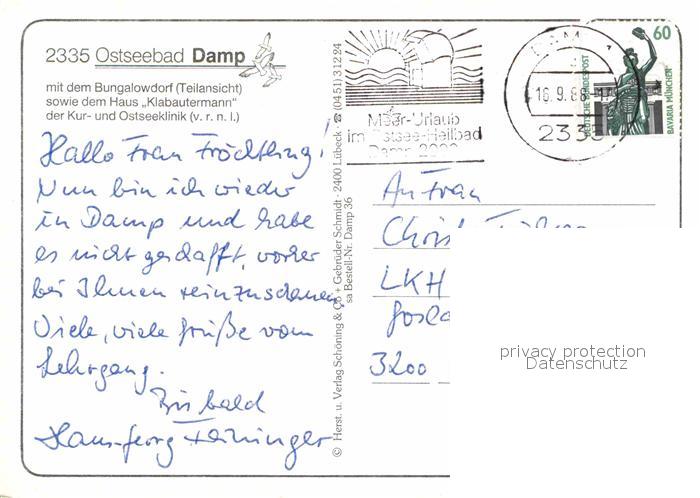 2335 Ostseebad Damp
mit dem Bungalowdorf (Teilansicht)
sowie dem Haus „Klabautermann“
der Kur- und Ostseeklinik (v. r. n. l.)
Hallo Frau Fröchtling!
Nun bin ich wieder
in Damp und habe
es nicht geschafft, vorher
bei Ihnen reinzuschauen.
Viele, viele Grüße vom
Lehrgang.
Bis bald
Hans-Georg
© Herst. u. Verlag Schöning & Co + Gebrüder Schmidt · 2400 Lübeck · ☎ (0451) 31224
sa Bestell-Nr. Damp 36
Meer-Urlaub
im Ostsee-Heilbad
Damp 2000
DAMP 1
16.9.8
2335
60
DEUTSCHE BUNDESPOST
BAVARIA MÜNCHEN
An Frau
Christ
LKH
Gosla
3200
privacy protection
Datenschutz